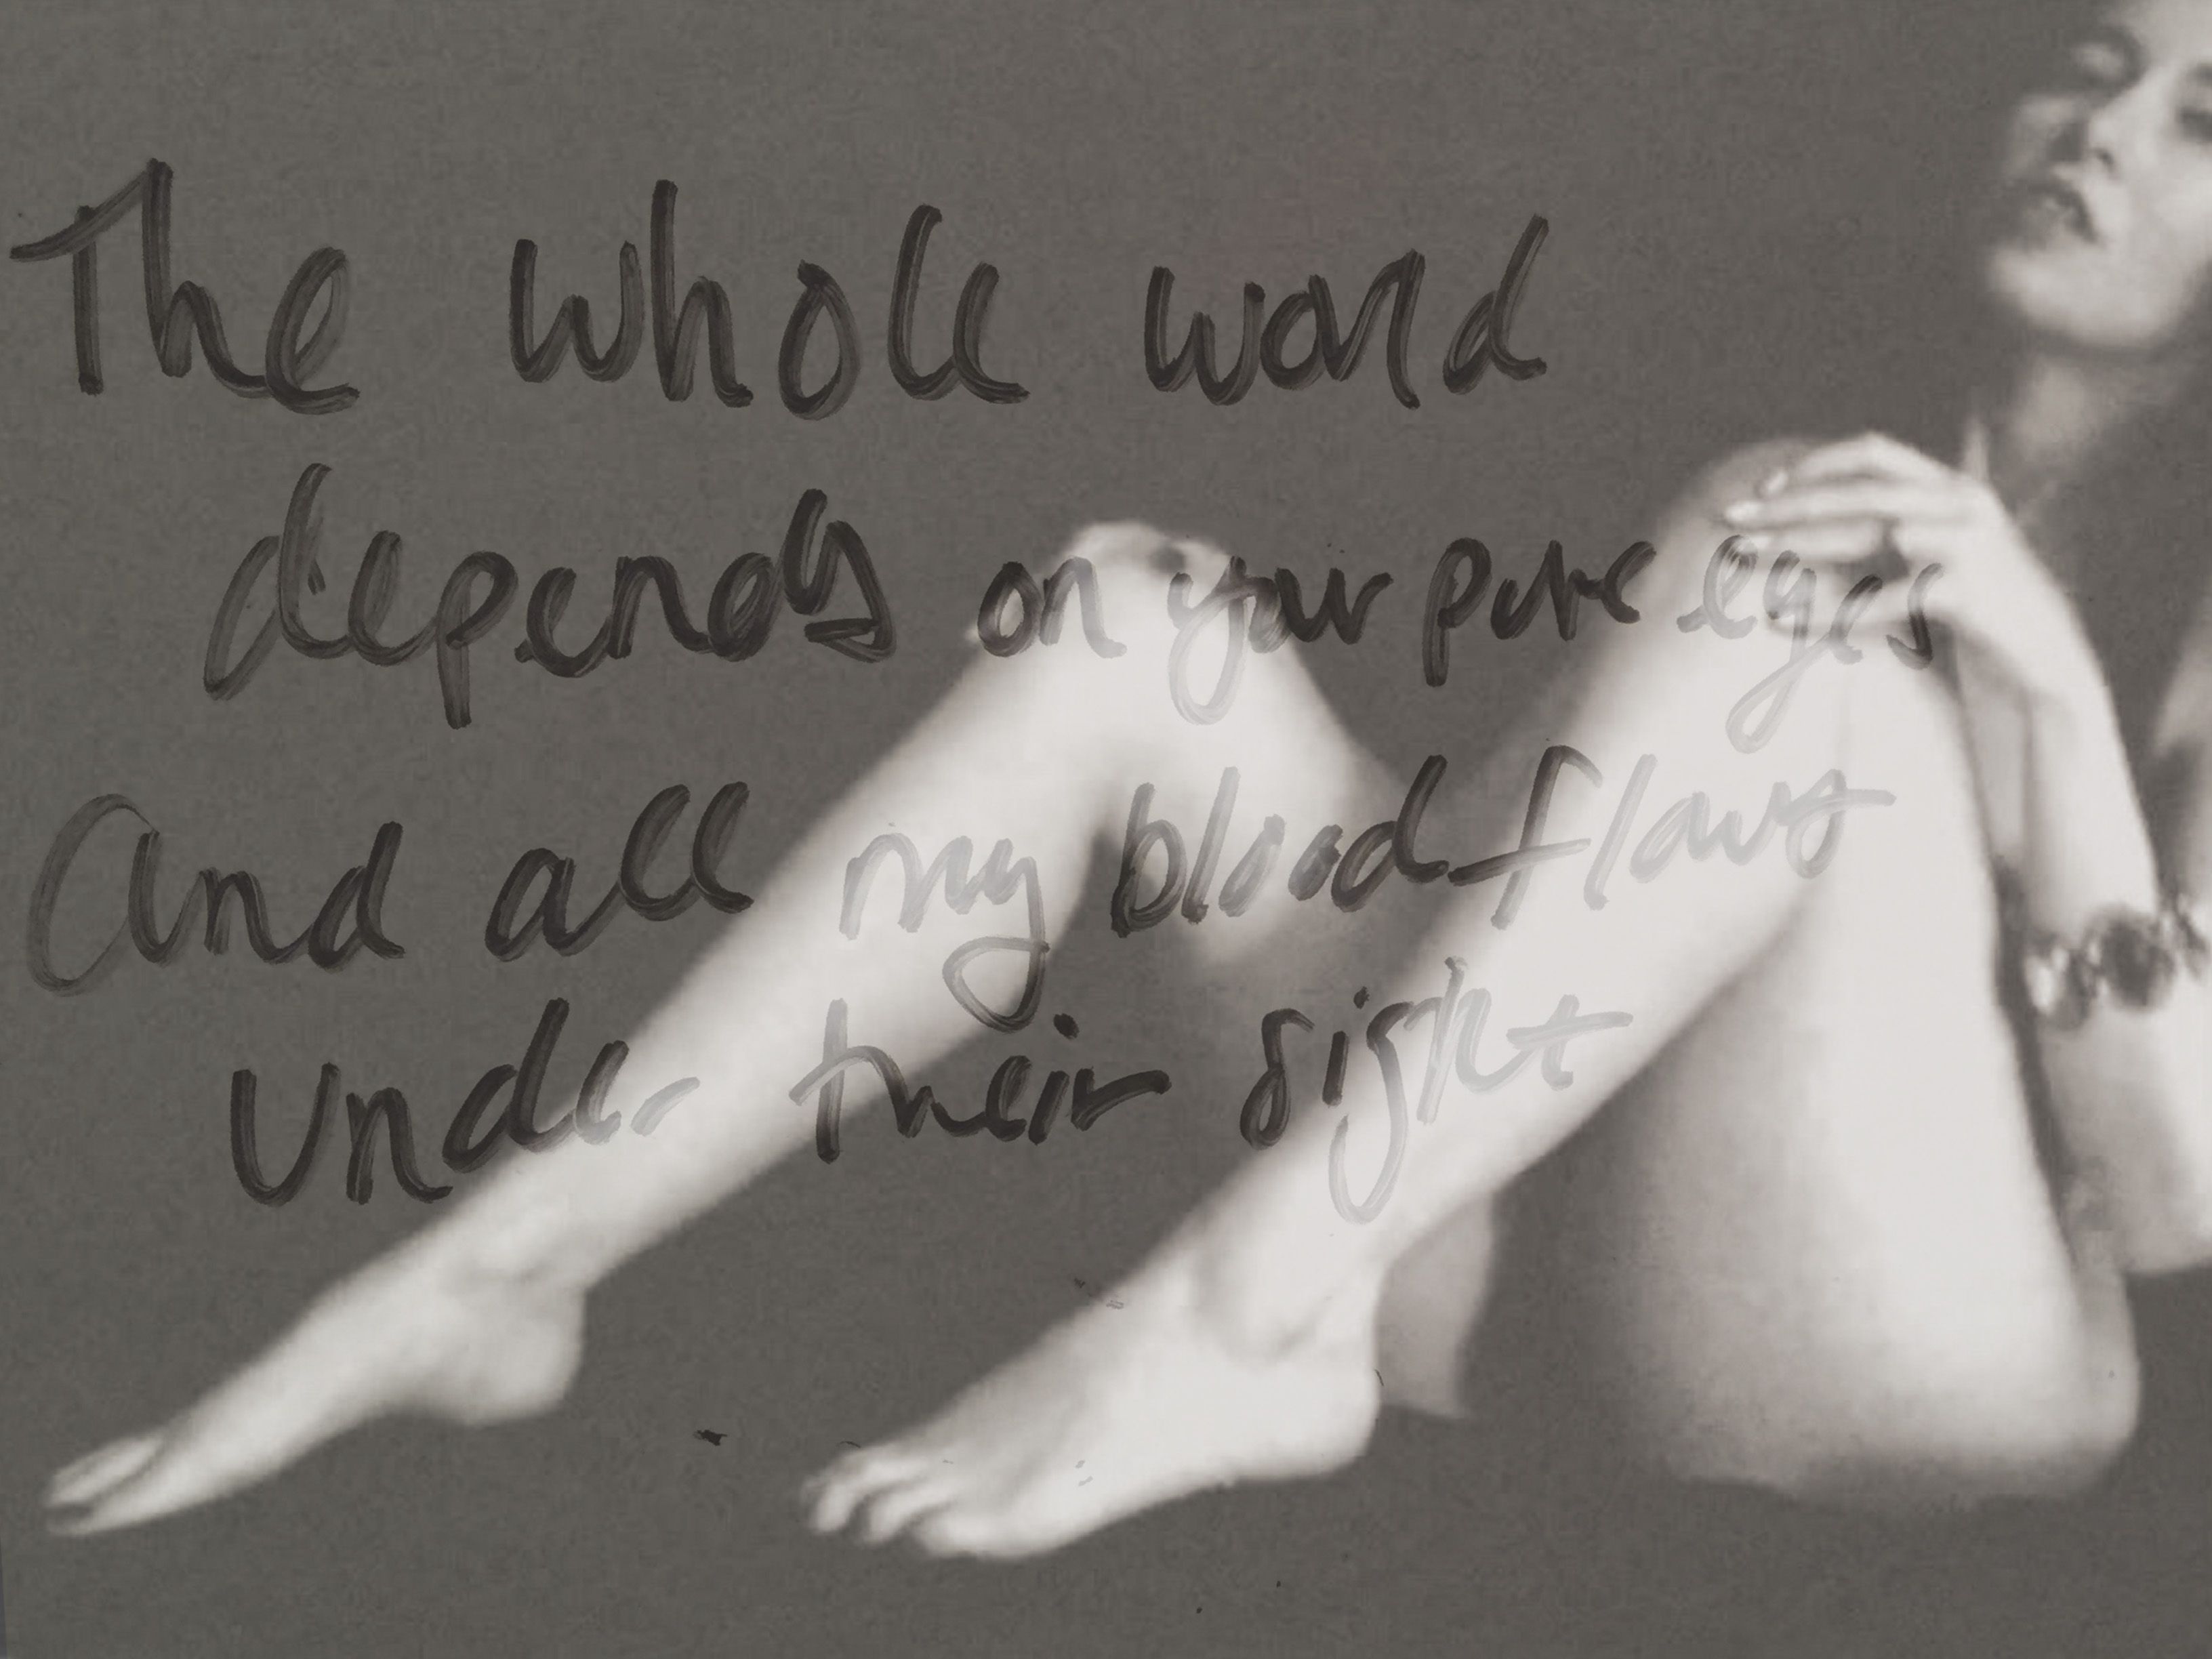 The whole world
depends on your pure eyes
And all my blood flows
Under their sight